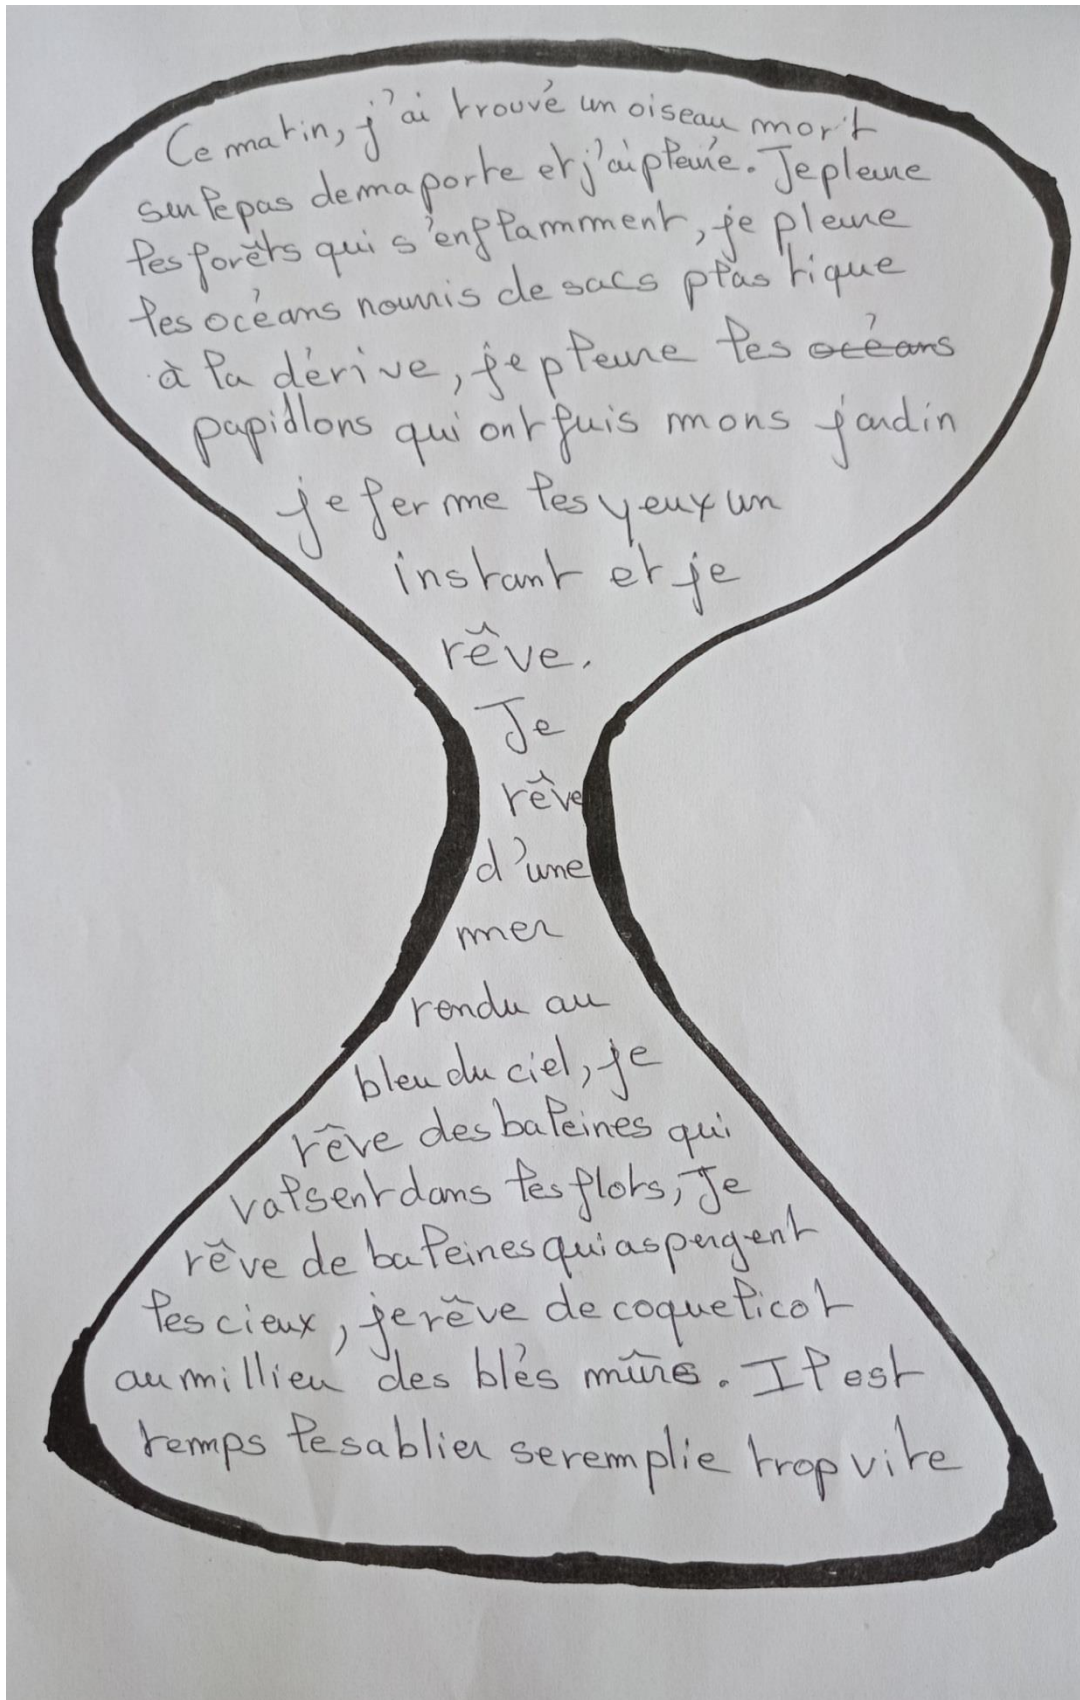 Ce matin, j'ai trouvé un oiseau mort
sur le pas de ma porte et j'ai pleuré. Je pleure
les forêts qui s'enflamment, je pleure
les océans nourris de sacs plastique
à la dérive, je pleure les océans
papidlons qui ont fuis mons jardin
je ferme les yeux un
instant et je
rêve.
Je
rêve
d'une
mer
rendu au
bleu du ciel, je
rêve des baleines qui
valsent dans les flots, Je
rêve de baleines qui aspergent
les cieux, je rêve de coquelicot
au millieu des blés mûrs. Il est
temps le sablier se remplie trop vite